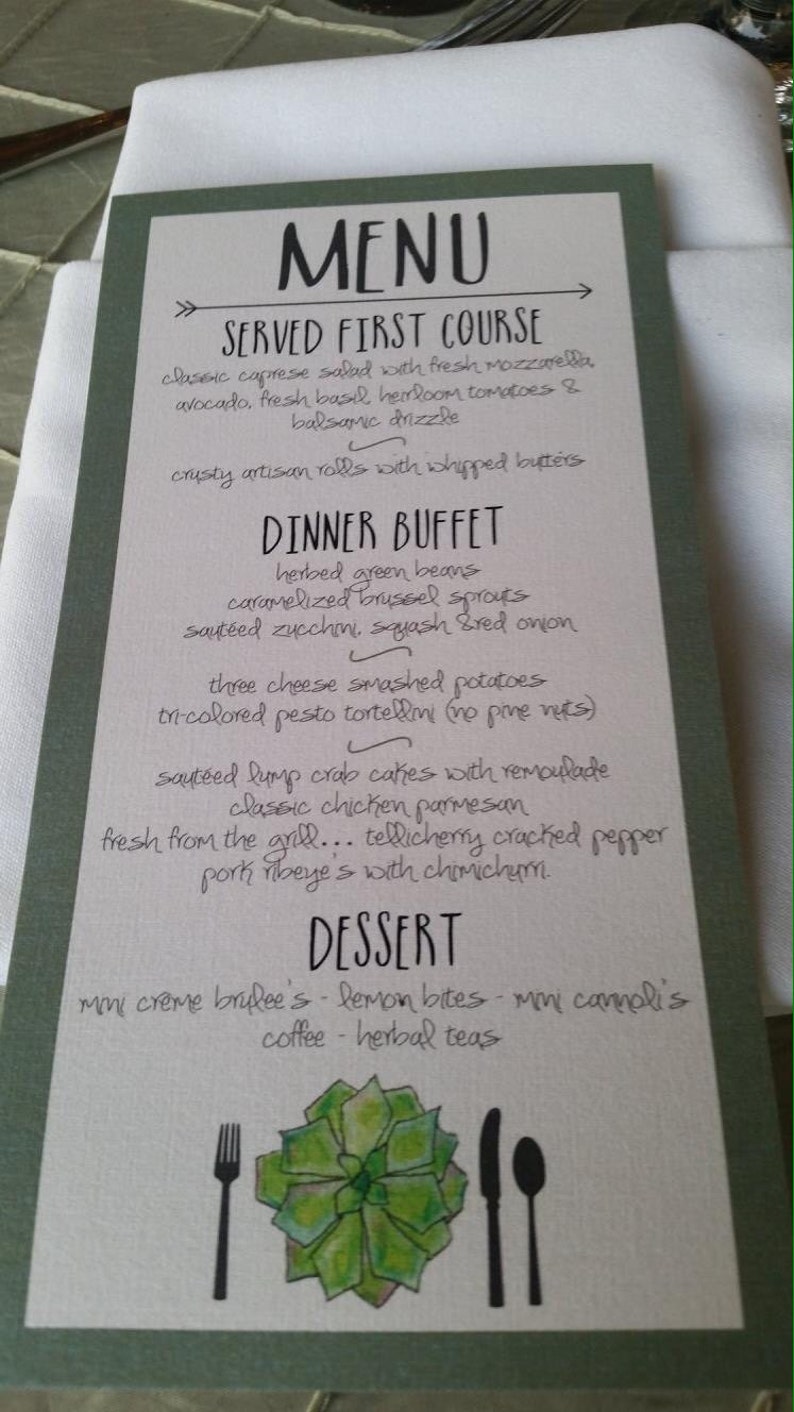 MENU
SERVED FIRST COURSE
classic caprese salad with fresh mozzarella,
avocado, fresh basil, heirloom tomatoes &
balsamic drizzle
crusty artisan rolls with whipped butters
DINNER BUFFET
herbed green beans
caramelized brussel sprouts
sautéed zucchini, squash & red onion
three cheese smashed potatoes
tri-colored pesto tortellini (no pine nuts)
sautéed lump crab cakes with remoulade
classic chicken parmesan
fresh from the grill... tellicherry cracked pepper
pork ribeye's with chimichurri.
DESSERT
mini crème brulee's - lemon bites - mini cannoli's
coffee - herbal teas